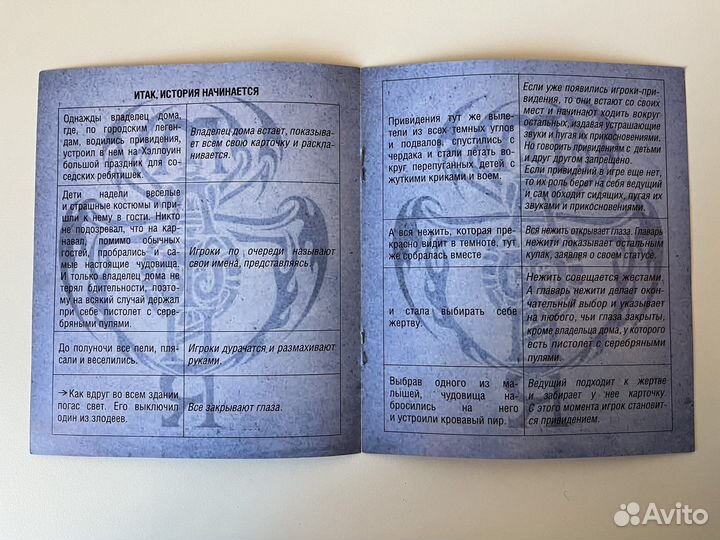 ИТАК, ИСТОРИЯ НАЧИНАЕТСЯ
Однажды владелец дома,
где, по городским леген-
дам, водились привидения,
устроил в нем на Хэллоуин
большой праздник для со-
седских ребятишек.
Владелец дома встает, показыва-
ет всем свою карточку и раскла-
нивается.
Дети надели веселые
и страшные костюмы и при-
шли к нему в гости. Никто
не подозревал, что на кар-
навал, помимо обычных
гостей, пробрались и са-
мые настоящие чудовища.
И только владелец дома не
терял бдительности, поэто-
му на всякий случай держал
при себе пистолет с сере-
бряными пулями.
Игроки по очереди называют
свои имена, представляясь.
До полуночи все пели, пля-
сали и веселились.
Игроки дурачатся и размахивают
руками.
→Как вдруг во всем здании
погас свет. Его выключил
один из злодеев.
Все закрывают глаза.
Привидения тут же выле-
тели из всех темных углов
и подвалов, спустились с
чердака и стали летать во-
круг перепуганных детей с
жуткими криками и воем.
Если уже появились игроки-при-
видения, то они встают со своих
мест и начинают ходить вокруг
остальных, издавая устрашающие
звуки и пугая их прикосновениями.
Но говорить привидениям с детьми
и друг другом запрещено.
Если привидений в игре еще нет,
то их роль берет на себя ведущий
и сам обходит сидящих, пугая их
звуками и прикосновениями.
А вся нежить, которая пре-
красно видит в темноте, тут
же собралась вместе
Вся нежить открывает глаза. Главарь
нежити показывает остальным
кулак, заявляя о своем статусе.
и стала выбирать себе
жертву.
Нежить совещается жестами.
А главарь нежити делает окон-
чательный выбор и указывает
на любого, чьи глаза закрыты,
кроме владельца дома, у которого
есть пистолет с серебряными
пулями.
Выбрав одного из ма-
лышей, чудовища на-
бросились на него
и устроили кровавый пир.
Ведущий подходит к жертве
и забирает у нее карточку.
С этого момента игрок становит-
ся привидением.
Avito